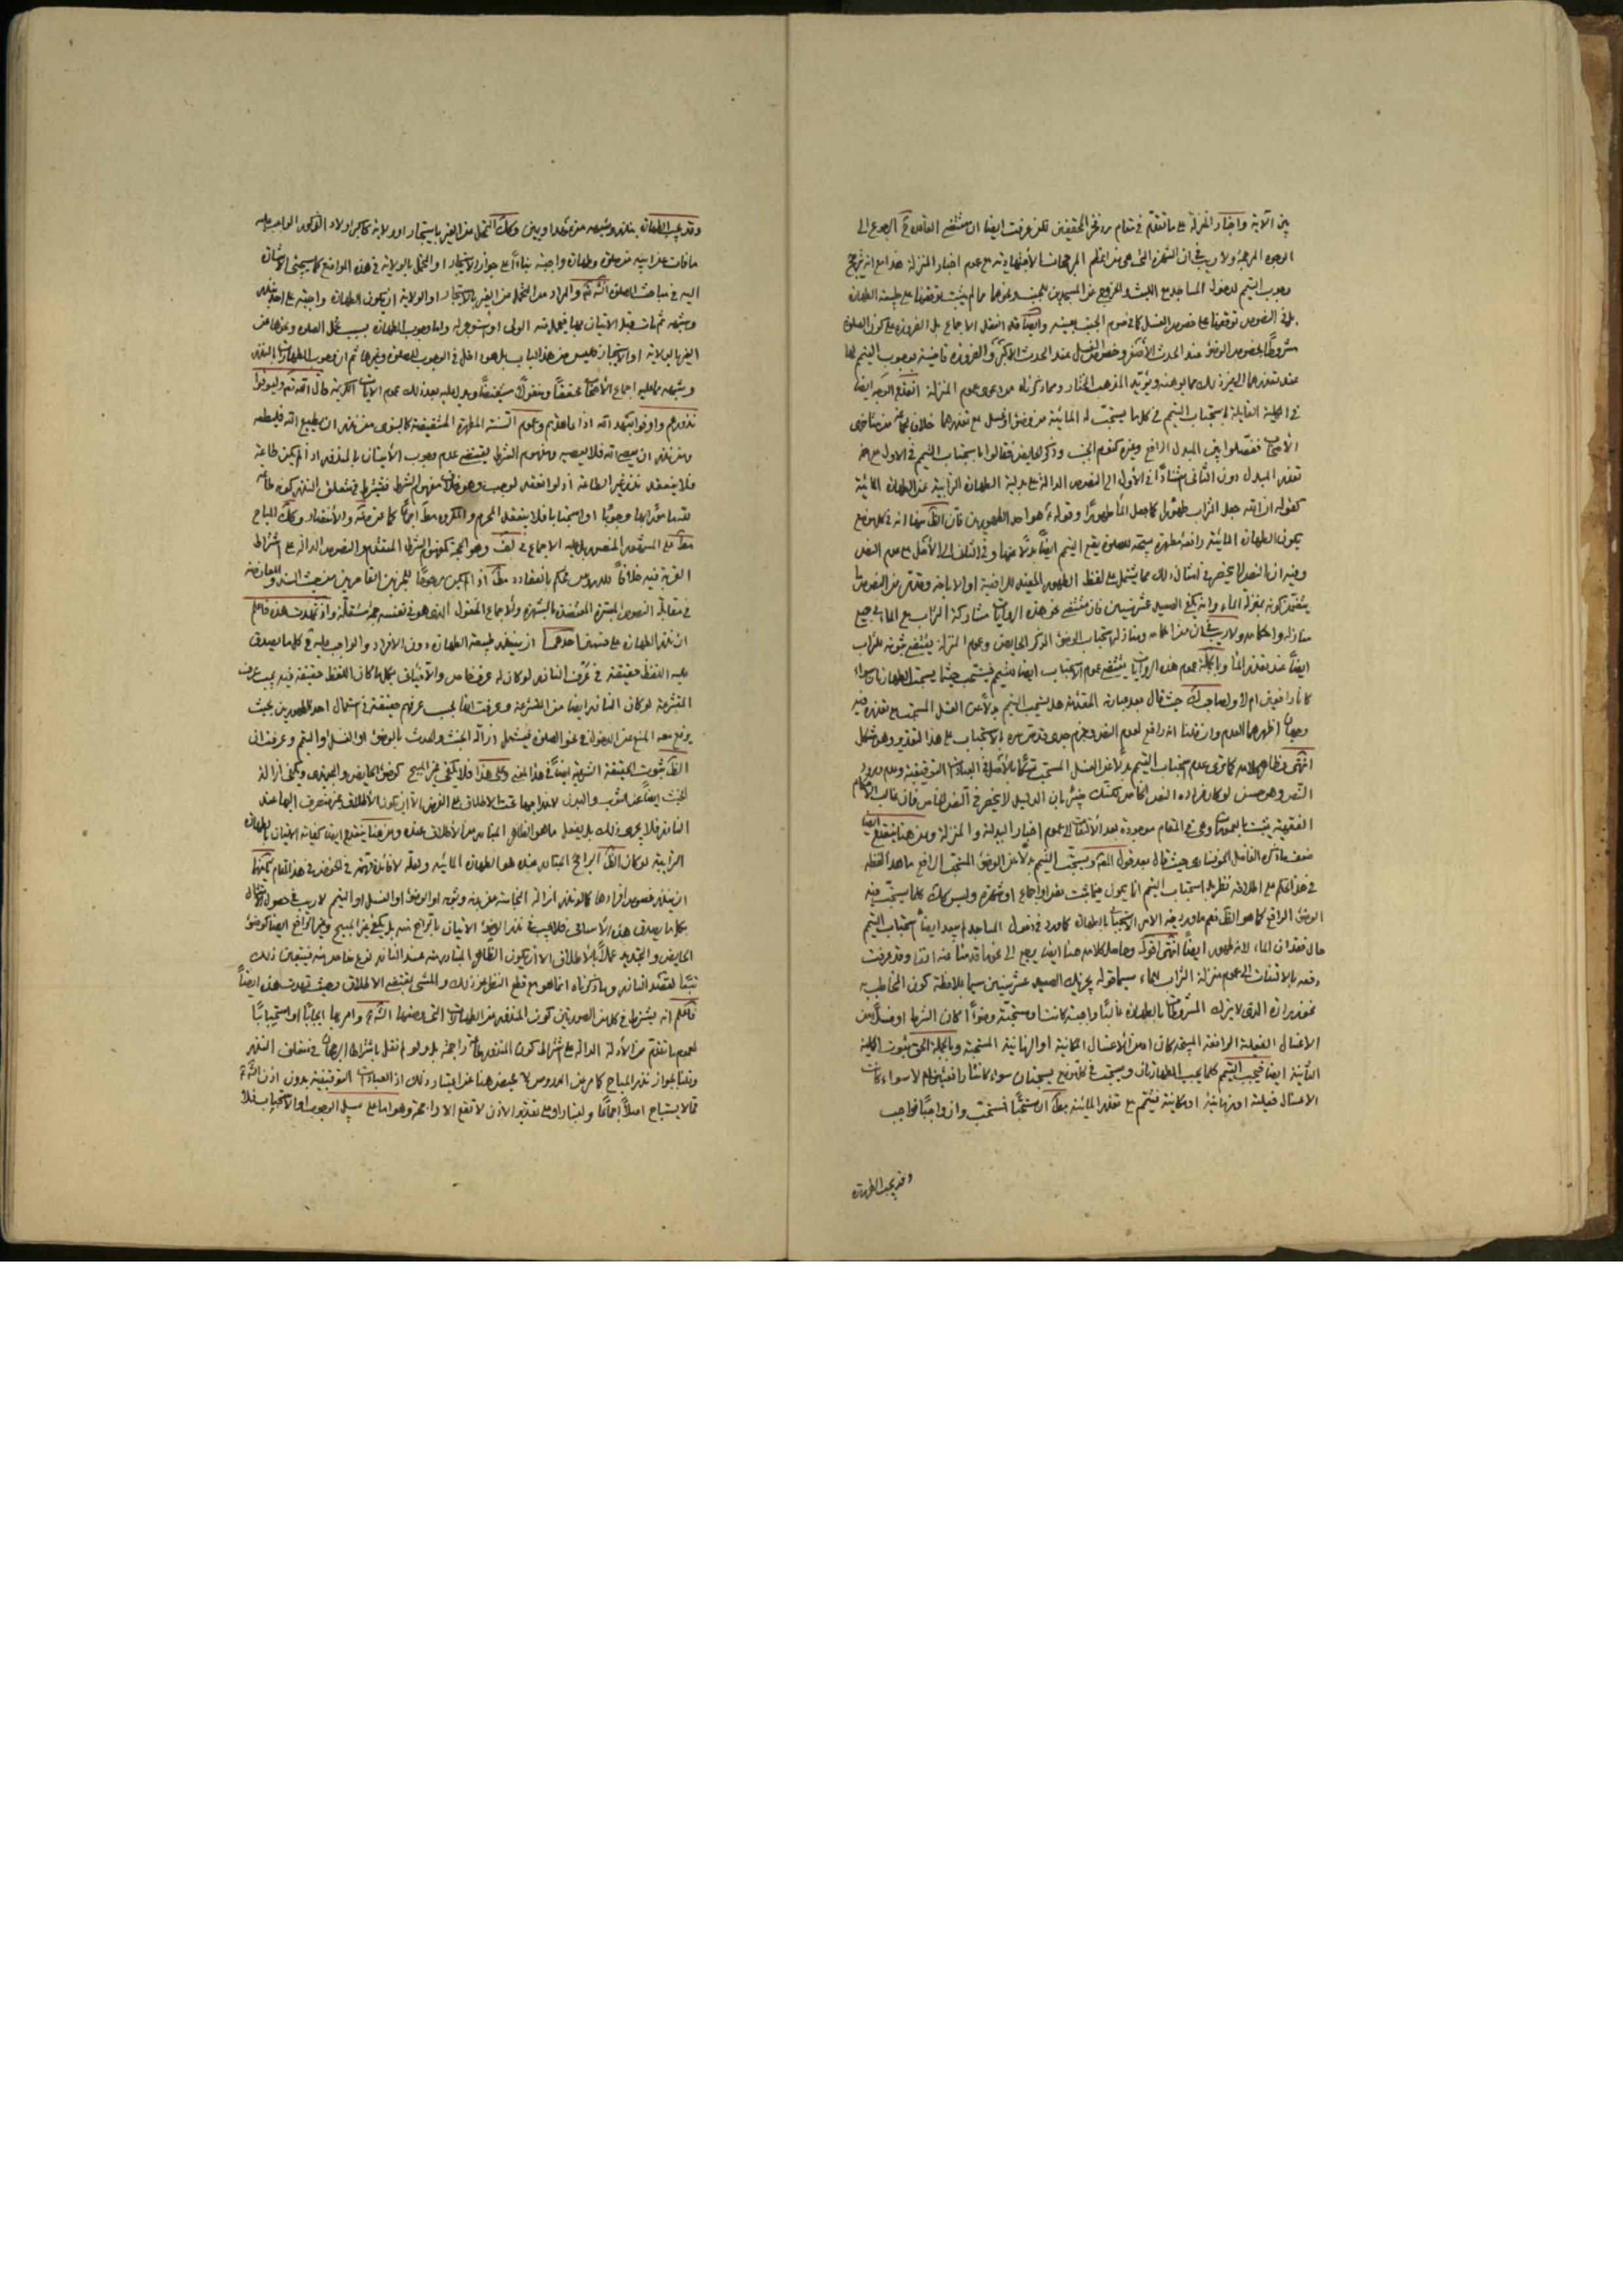 بين الآية واخبار المنزلة على ما تقدّم في مقام ردّ فخر المحققين لكن عرفت ايضا ان مقتضى القاعدة الرجوع الى
الوجوه المرجحة ولا ريب في ان الشهرة التي هي من اعظم المرجحات الاجتهادية مع عموم اخبار المنزلة هذا مع انه يرجح
وجوب التيمم لدخول المساجد مع اللبث والخروج عن المسجدين للجنب ونحوها مما لم يثبت توقفها على طبيعة الطهارة
بل في النصوص توقفها على خصوص الغسل كما في صوم الجنب بعينه وايضا قد انعقد الاجماع بل الضرورة على كون الصلوة
مشروطة بخصوص الوضوء عند الحدث الاصغر وخصوص الغسل عند الحدث الاكبر والضرورة قاضية بوجوب التيمم لها
عند تعذرهما الى غير ذلك مما يوهنه ويؤيد المذهب المختار ومما ذكرناه من دعوى عموم المنزلة انقدح الوجه ايضا
في الكلية القائلة باستحباب التيمم في كل ما يستحب له المائية من وضوء او غسل مع تعذرهما خلافا لجماعة من متاخرى
الاصحاب ففصلوا بين المبدل الرافع وغيره كنوم الجنب وذكر الحايض فقالوا باستحباب التيمم في الاول مع
تعذر المبدل دون الثاني استنادا في الاول الى النصوص الدالة على بدلية الطهارة الترابية عن الطهارة المائية
كقوله ان الله جعل التراب طهورا كما جعل الماء طهورا وقوله هو احد الطهورين فان الظ منها انه في كل موضع
يكون الطهارة المائية رافعة مطهرة مبيحة للصلوة يقع التيمم ايضا بدلا عنها وفي الثاني الى الاصل مع عدم النص
وفيه ان النص لا ينحصر في امثال ذلك مما يشتمل على لفظ الطهور المفيد للرافعية او الاباحة وقد مر من النصوص ما
يتضمن كونه بمنزلة الماء وانه يكفي الصعيد عشر سنين فان مقتضى نحو هذه الروايات مشاركة التراب مع الماء في جميع
منازله واحكامه ولا ريب في ان من احكامه ومنازله استحباب الوضوء لذكر الحايض وعموم المنزلة يقتضي ثبوته للتراب
ايضا عند تعذر الماء وبالجملة عموم هذه الروايات يقتضي عموم الاستحباب ايضا للتيمم فيستحب حيثما يستحب الطهارتان سواء
كانا رافعين ام لا ولصاحب ك حيث قال بعد عبارته المتقدمة هل يستحب التيمم بدلا عن الغسل المستحب مع تعذره فيه
وجهان اظهرهما العدم وان قلنا انه رافع لعدم النص وجزم جدى قدس سره بالاستحباب على هذا التقدير وهو مشكل
انتهى وظاهر كلامه كما ترى عدم استحباب التيمم بدلا عن الغسل المستحب تمسكا بالاصل في العبادات التوقيفية وعدم ورود
النص وهو حسن لو كان مراده النص الخاص لكنك خبير بان الدليل لا ينحصر في النص الخاص فان غالب الاحكام
الفقهية يثبت بالعمومات وهي في المقام موجودة بعد الالتفات الى عموم اخبار البدلية والمنزلة ومن هنا ينقدح ايضا
ضعف ما ذكره الفاضل الخونساري حيث قال بعد قول الشهيد ويستحب التيمم بدلا عن الوضوء المستحب الرافع ما هذا لفظه
في هذا الحكم على اطلاقه نظر بل استحباب التيمم انما يكون فيما ثبت بنص او اجماع او شهرة وليس كذلك كلما يستحب فيه
الوضوء الرافع كما هو الظ نعم ما ورد فيه الامر الاستحبابي بالطهارة كما ورد في دخول المساجد لم يبعد ايضا استحباب التيمم
حال فقدان الماء لانه طهور ايضا انتهى اقول وحاصل كلامه هنا ايضا يرجع الى نحو ما قدمنا عنه انفا وقد عرفت
دفعه بالالتفات الى عموم منزلة التراب للماء سيما قوله يجزيك الصعيد عشر سنين سيما بملاحظة كون المخاطب به
نحو ابي ذر الذي لا يترك المشروطات بالطهارة غالبا واجبة كانت او مستحبة وضوءا كان الشرط او غسلا من
الاغسال الفعلية الرافعة المبيحة كان او من الاغسال المكانية او الزمانية المستحبة وبالجملة الحق ثبوت الكلية
الثانية ايضا فيجب التيمم كلما يجب الطهارتان ويستحب في كل موضع يستحبان سواء كانتا رافعتين ام لا سواء كانت
الاغسال فعلية او زمانية او مكانية فيتيمم مع تعذر المائية مط ان مستحبا فمستحب وان واجبا فواجب
وقد يجب الطهارة
وقد يجب الطهارة بنذر وشبهه من عهد او يمين وكذا التحمل من الغير باستيجار او ولاية كاكبر اولاد الذكور الواجب عليه
ما فات عن ابيه من صلوة وطهارة واجبة بناء على جواز الاستيجار او التحمل بالولاية في هذه المواضع كما سيجئ الاشارة
اليه في مباحث الصلوة انش تع والمراد من التحمل من الغير بالاستيجار او الولاية ان يكون الطهارة واجبة على احد بنذر
وشبهه ثم مات قبل الاتيان بها فيحمل منه الولي او يستوجر له واما وجوب الطهارة بسبب تحمل الصلوة ونحوها من
الغير بالولاية او الاستيجار فليس من هذا الباب بل هو داخل في الوجوب للصلوة وغيرها ثم ان وجوب الطهارات بالنذر
وشبهه مما عليه اجماع الاصحاب محققا ومنقولا مستفيضا ويدل عليه بعد ذلك عموم الايات الكريمة قال الله تع وليوفوا
نذورهم واوفوا بعهد الله اذا عاهدتم وعموم السنة المطهرة المستفيضة كالنبوى من نذر ان يطيع الله فليطعه
ومن نذر ان يعصي الله فلا يعصيه ومفهوم الشرط يقتضي عدم وجوب الاتيان بالمنذور اذا لم يكن طاعة
فلا ينعقد نذر غير الطاعة اذ لو انعقد لوجب وهو خلاف مفهوم الشرط فيشترط في متعلق النذر كونه طاعة
لله مامورا بها وجوبا او استحبابا فلا ينعقد المحرم والمكروه مط اجماعا كما عن والانتصار وكذا المباح
مط على المشهور المنصور بل عليه الاجماع في وهو الحجة كمفهوم الشرط المتقدم والنصوص الدالة على اشتراط
القربة فيه خلافا للدروس فحكم بانعقاده مط اذا لم يكن مرجوحا للخبرين القاصرين من حيث السند والمعارضة
في مقابلة النصوص المعتبرة المعتضدة بالشهرة والاجماع المنقول الذي هو في نفسه حجة مستقلة واذ تمهدت هذه فاعلم
ان نذر الطهارة على قسمين احدهما ان ينذر طبيعة الطهارة دون الافراد والواجب عليه كلما يصدق
عليه اللفظ حقيقة في عرف الناذر لو كان له عرف خاص والا فبكل ما كان اللفظ حقيقة فيه بحسب عرف
المتشرعة لو كان الناذر ايضا من المتشرعة وعرفت انفا بحسب عرفهم حقيقة في استعمال احد الطهورين بحيث
يرتفع معه المنع عن الدخول في نحو الصلوة فيشمل ازالة الخبث والحدث بالوضوء او الغسل او التيمم وعرفت ان
الظ ثبوت الحقيقة الشرعية ايضا في هذا المعنى وعلى هذا فلا يكفي غير المبيح كوضوء الحايض والتجديدي ويكفي ازالة
الخبث ايضا عن الثوب والبدن لاندراجها تحت الاطلاق على الفرض الا ان يكون الاطلاق غير منصرف اليها عند
الناذر فلا يجزى ذلك بل يفعل ما هو الظاهر المتبادر من الاطلاق عنده ومن هنا ينقدح ايضا كفاية الاتيان بالطهارة
الترابية لو كان الظ الراجح المتبادر عنده هو الطهارة المائية ولعله لا فائدة مهمة في الخوض في هذا المقام ثانيهما
ان ينذر خصوص افرادها كما لو نذر ازالة النجاسة من بدنه وثوبه او الوضوء او الغسل او التيمم لا ريب في حصول الامتثال
بكل ما يصدق هذه الاسامى فلا يجب في نذر الوضوء الاتيان بالرافع منه بل يكفي غير المبيح وغير الرافع ايضا كوضوء
الحايض والتجديد عملا بالاطلاق الا ان يكون الظاهر المتبادر منه عند الناذر نوع خاص منه فيتعين ذلك
تبعا لقصد الناذر وما ذكرناه انما هو مع قطع النظر عن ذلك والمشى بمقتضى الاطلاق وحيث تمهدت هذه ايضا
فاعلم انه يشترط في كل من الصورتين كون المنذور من الطهارات التي وضعها الش تع وامر بها ايجابا او استحبابا
لعموم ما تقدم من الادلة الدالة على اشتراط كون المنذور طاعة راجحة بل ولو لم نقل باشتراط الرجحان في متعلق النذر
وقلنا بجواز نذر المباح كما مر عن الدروس لا محيص هنا عن اعتبار ذلك اذ العبادات التوقيفية بدون اذن الش تع
مما لا يستباح اصلا اجماعا واعتبارا ومع تقدير الاذن لا تقع الا راجحة وهو اما على سبيل الوجوب او الاستحباب فلا